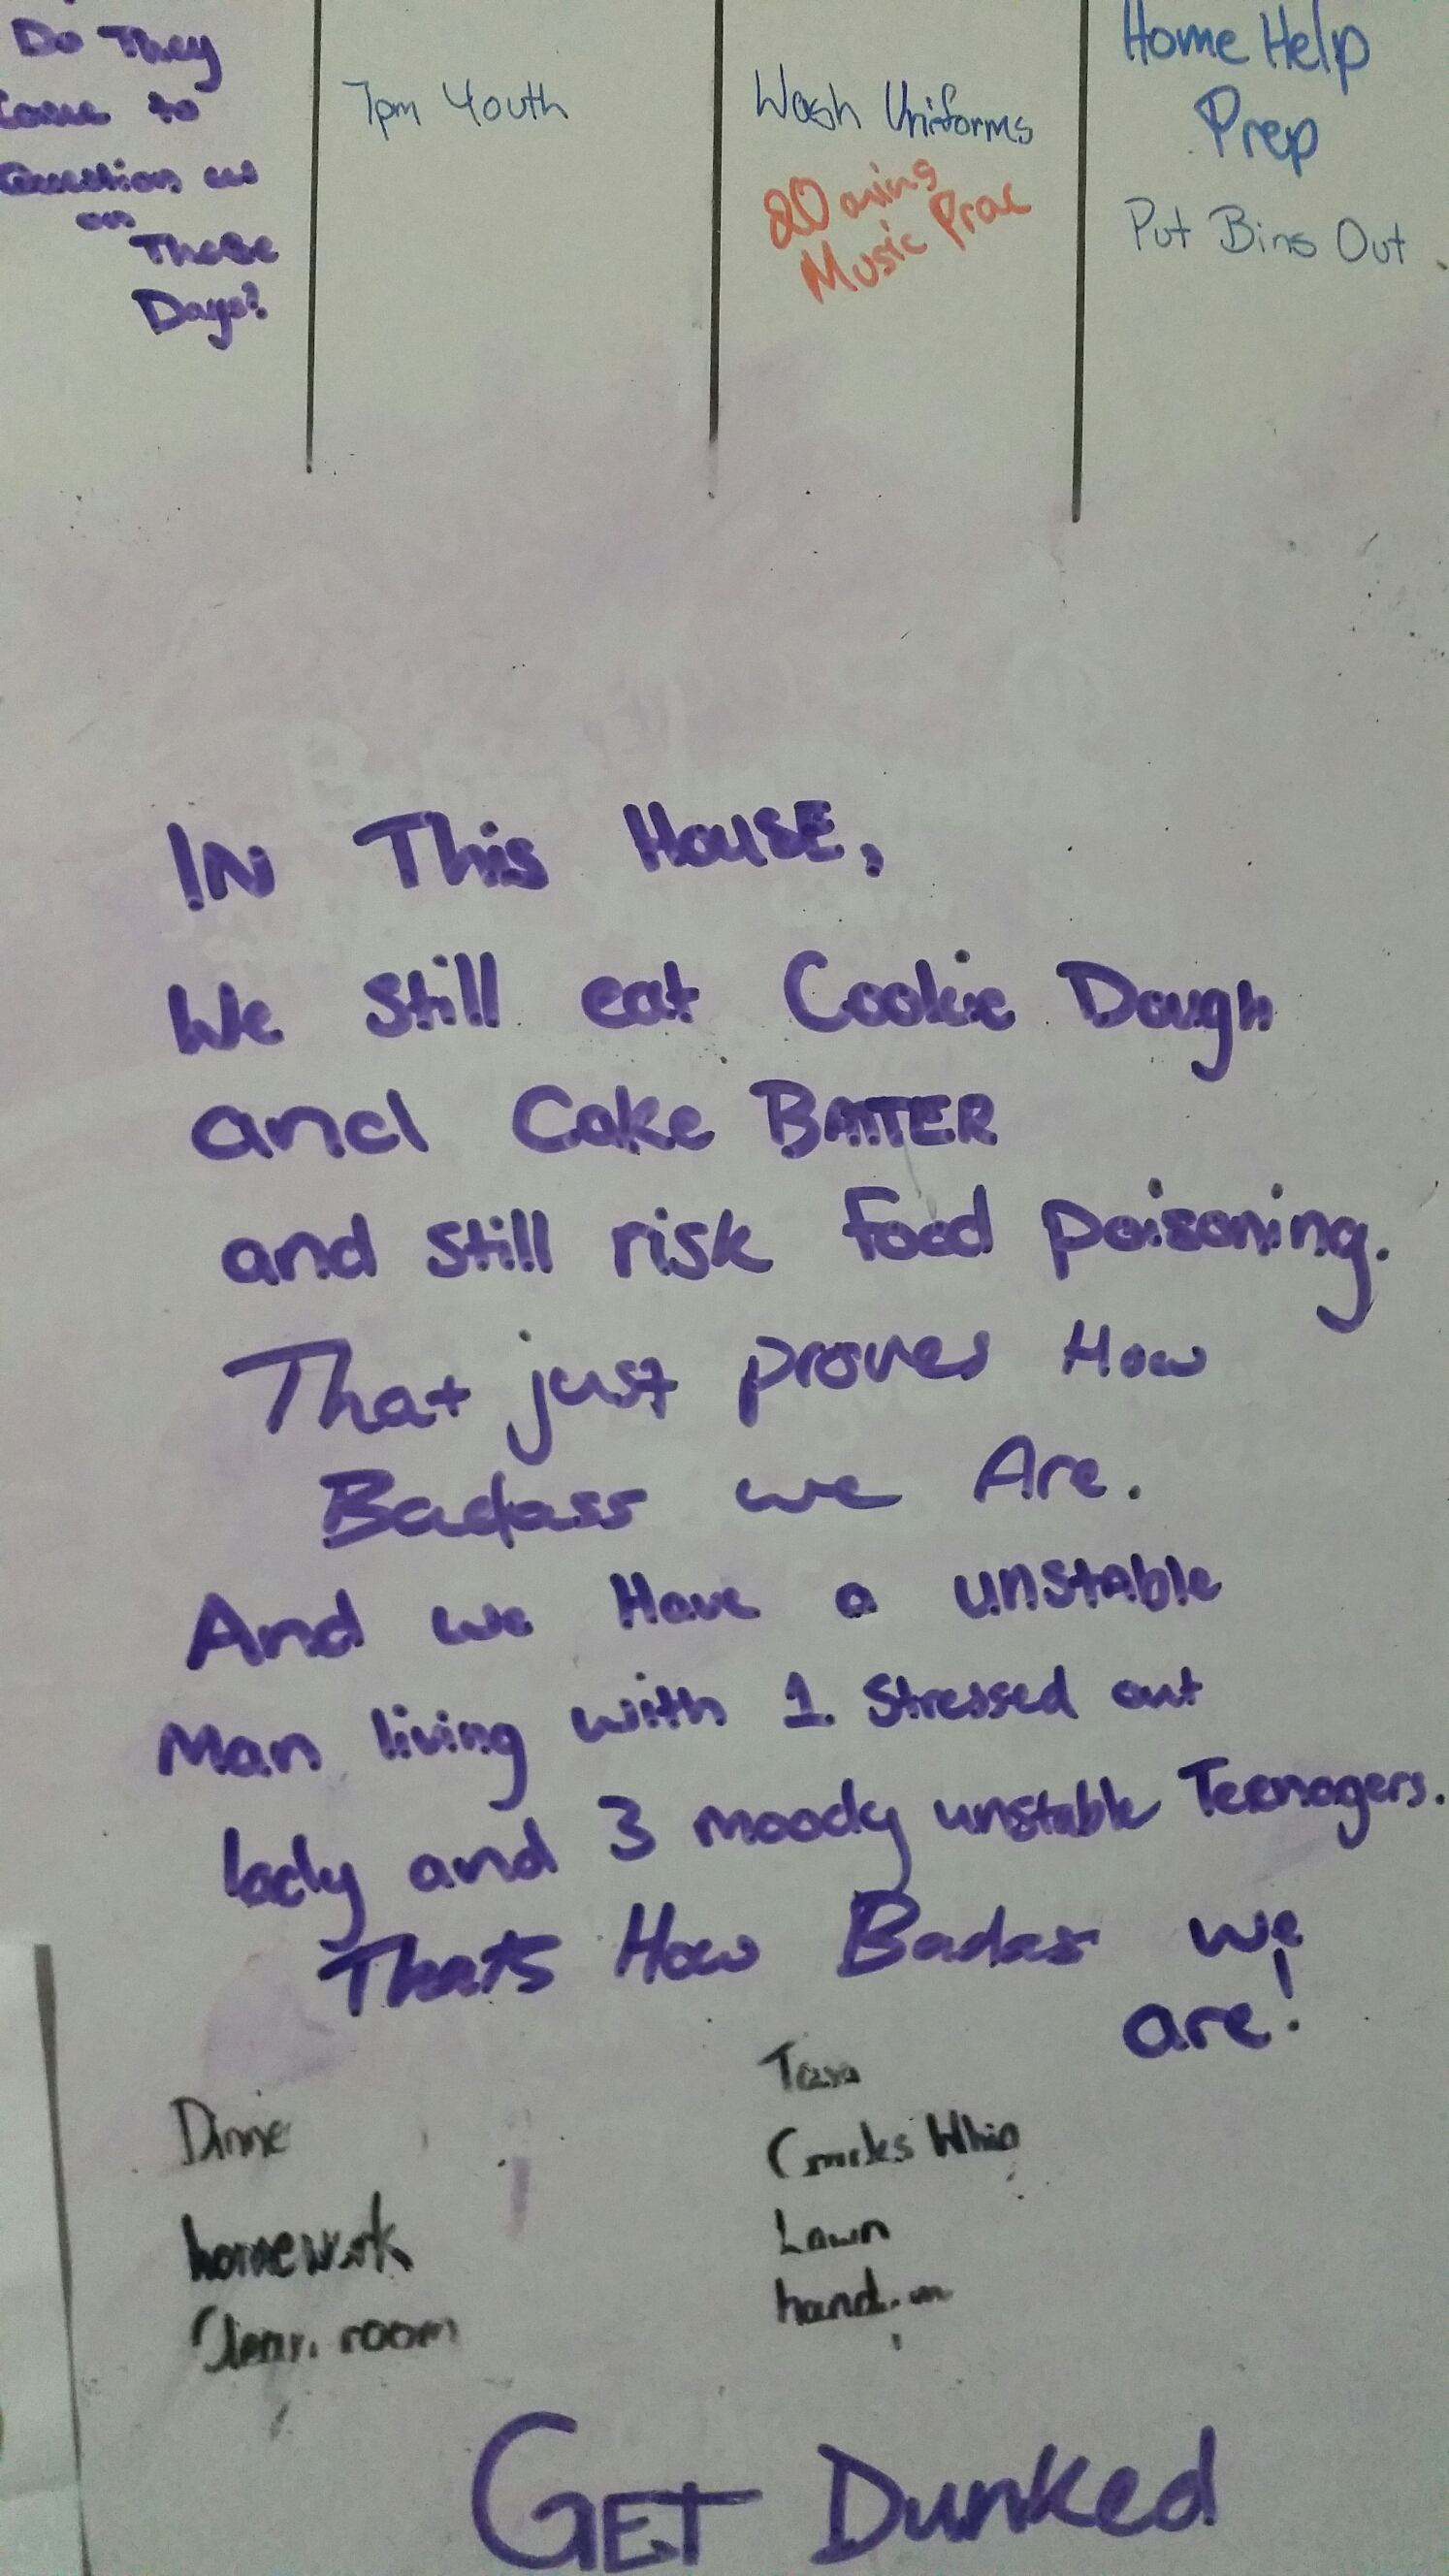 Do They
Come to
Question us
on
These
Days?
7pm Youth
Wash Uniforms
20 mins
Music Prac
Home Help
Prep
Put Bins Out
IN This HOUSE,
We still eat Cookie Dough
and Cake BATTER
and still risk food poisoning.
That just proves How
Badass we Are.
And we Have a unstable
Man living with 1 stressed out
lady and 3 moody unstable Teenagers.
Thats How Badass we
are!
Dinne
homework
Clean room
Lawn
GET Dunked